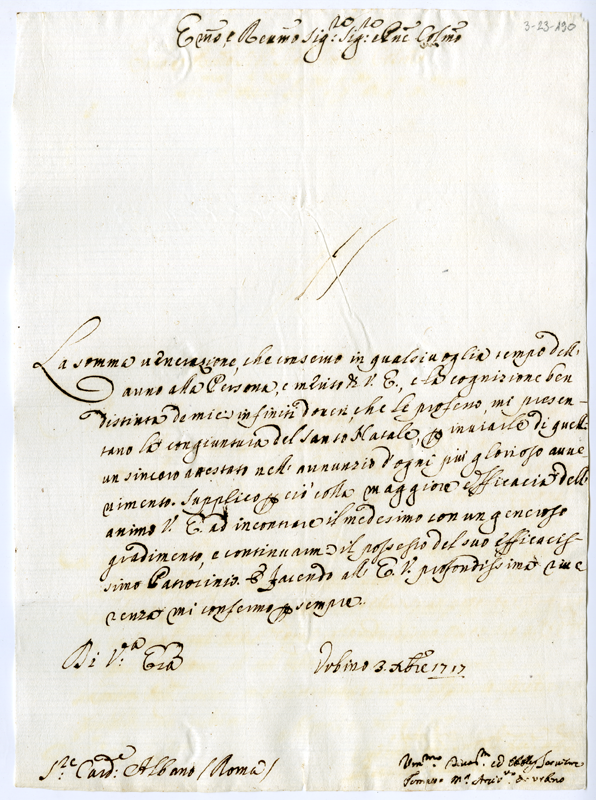 3-23-190
Em̃o, e Reum̃o Sig:re Sig:re e Pne Colm̃o
La somma venerazione, che conservo in qualsivoglia tempo dell'
anno alla Persona, e merito di V. E., e la cognizione ben
distinta de miei infiniti doveri, che le professo, mi presen-
tano la congiuntura del Santo Natale, per inviarle di quell'
un sincero attestato nell' annunzio d'ogni più glorioso avve
nimento. Supplico per ciò colla maggiore efficacia dell'
animo V. E. ad incontrare il medesimo con un generoso
gradimento, e continuarmi il possesso del suo efficacis
simo Patrocinio. E facendo all' E. V. profondissima rive
renza mi confermo per sempre.
Di V.ra Em̃a
Urbino 3. Xbre 1717
S.re Card.e Albano (Roma)
Um.mo Divot.mo ed Obblig. Servitore
Tommaso M.a Arciv.o di Urbino